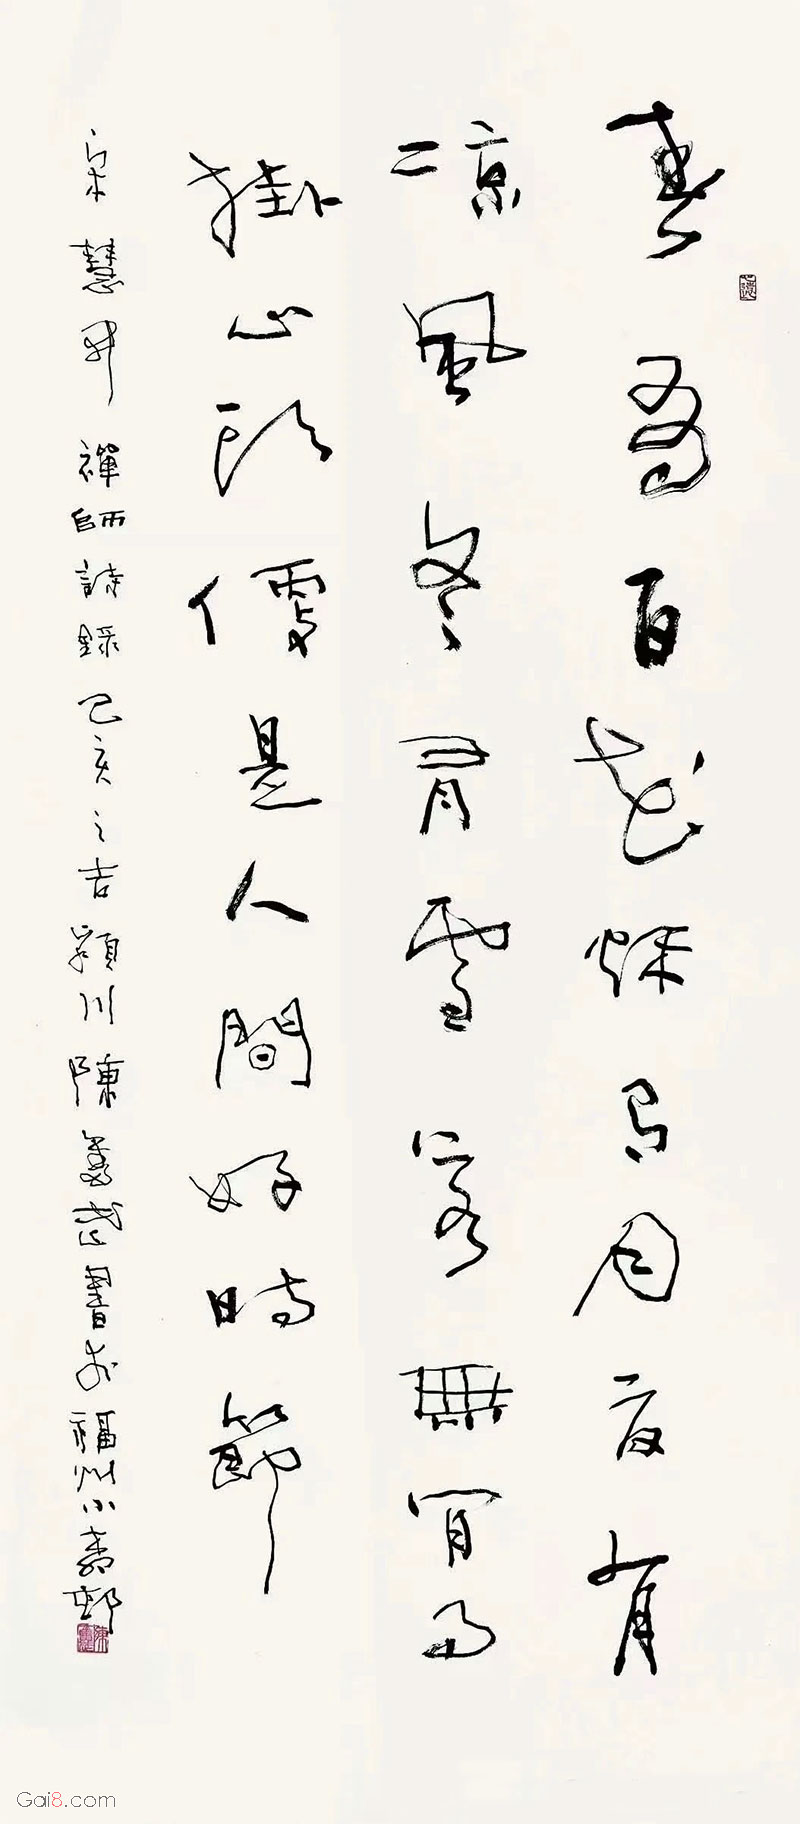 春有百花秋有月夏有
涼風冬有雪若無閒事
掛心頭便是人間好時節
宋慧開禪師詩錄己亥之吉潁川陳奮武書於福州小嘉邨
Gai8.com